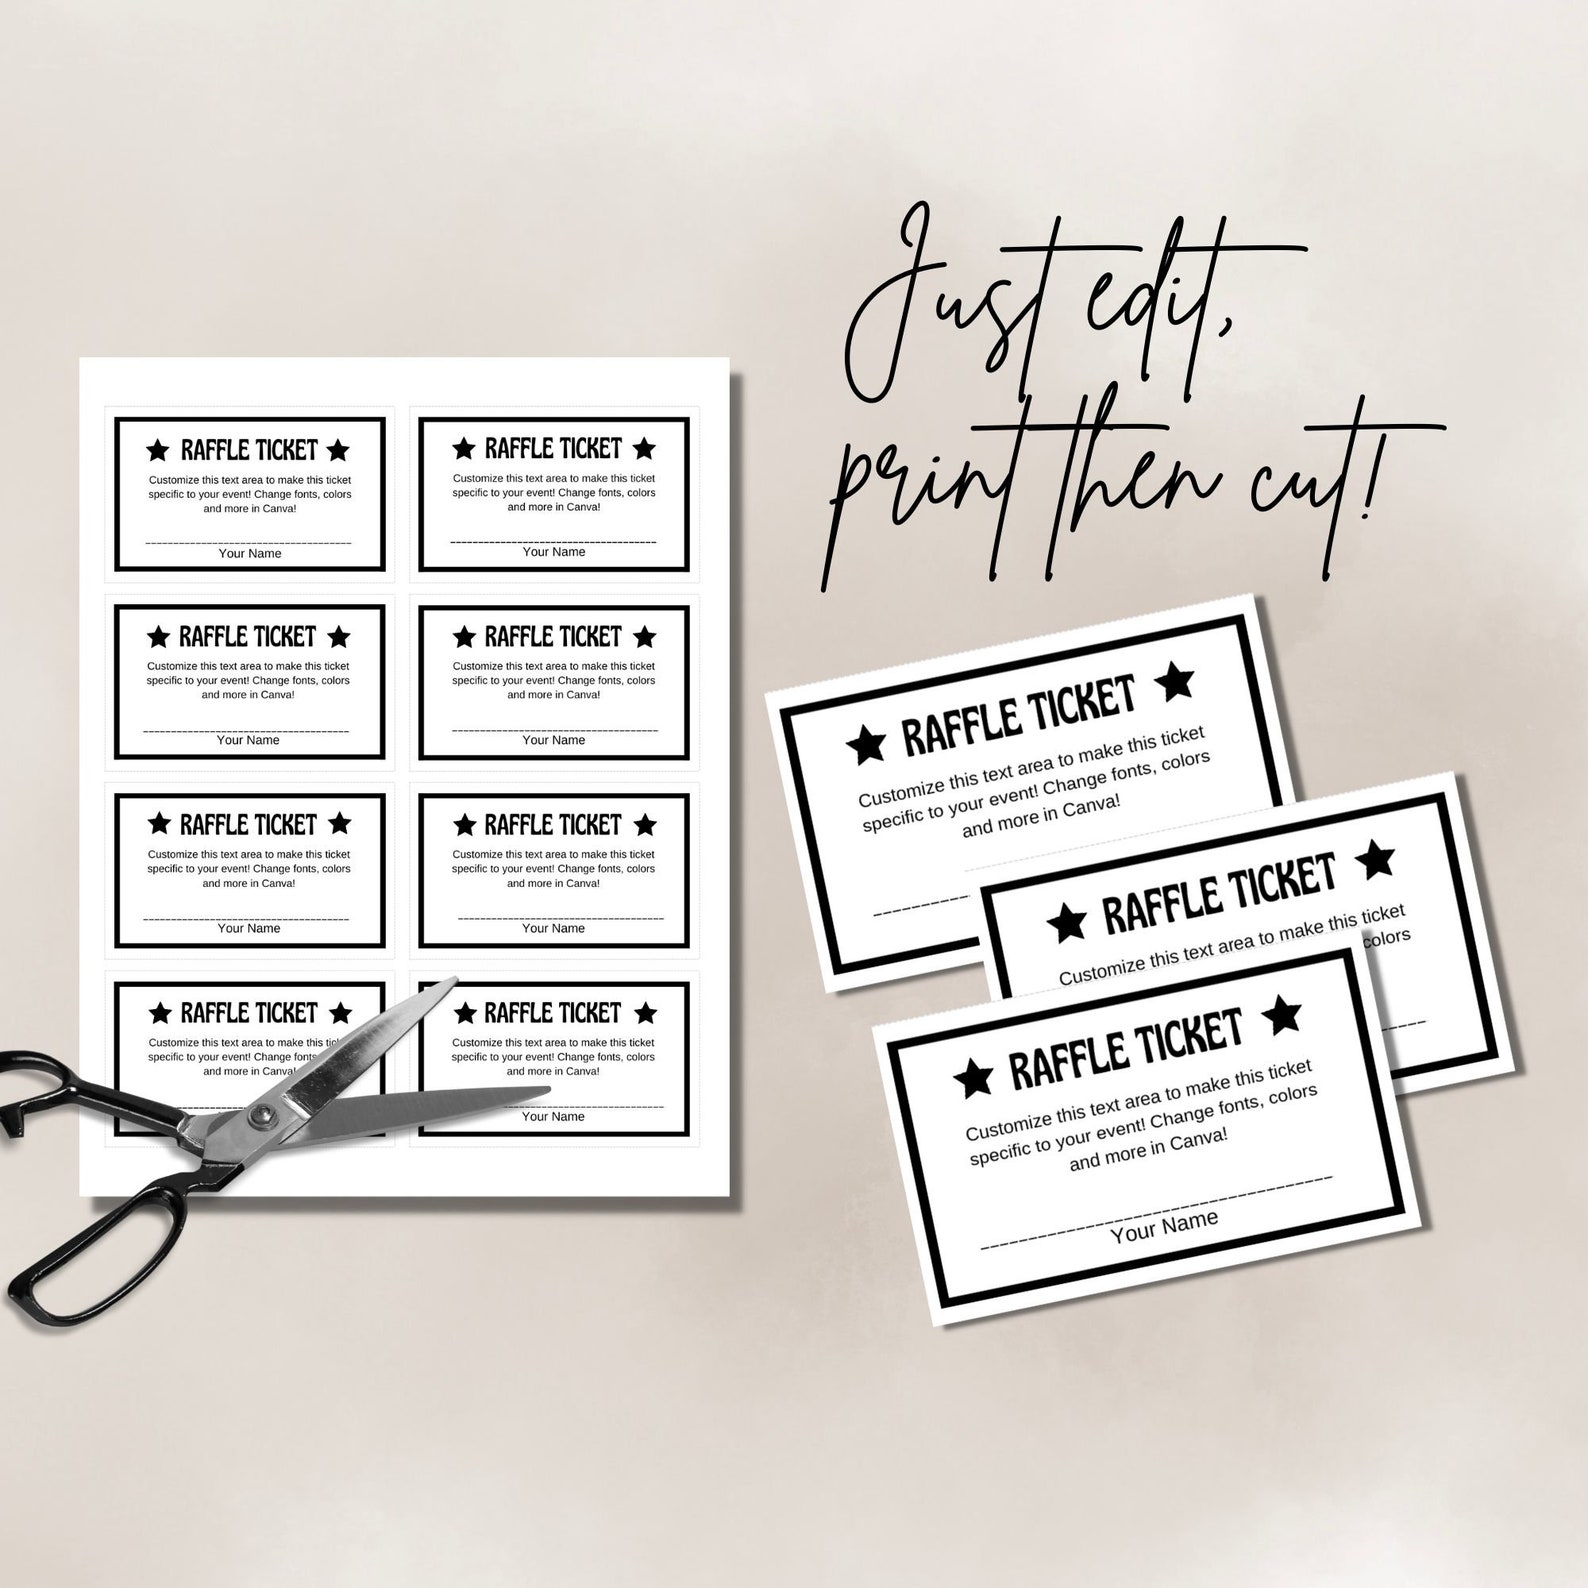 Just edit,
print then cut!
RAFFLE TICKET
Customize this text area to make this ticket
specific to your event! Change fonts, colors
and more in Canva!
Your Name
RAFFLE TICKET
Customize this text area to make this ticket
specific to your event! Change fonts, colors
and more in Canva!
Your Name
RAFFLE TICKET
Customize this text area to make this ticket
specific to your event! Change fonts, colors
and more in Canva!
Your Name
RAFFLE TICKET
Customize this text area to make this ticket
specific to your event! Change fonts, colors
and more in Canva!
Your Name
RAFFLE TICKET
Customize this text area to make this ticket
specific to your event! Change fonts, colors
and more in Canva!
Your Name
RAFFLE TICKET
Customize this text area to make this ticket
specific to your event! Change fonts, colors
and more in Canva!
Your Name
RAFFLE TICKET
Customize this text area to make this
specific to your event! Change
and more in Canva!
RAFFLE TICKET
Customize this text area to make this ticket
specific to your event! Change fonts, colors
and more in Canva!
Your Name
RAFFLE TICKET
Customize this text area to make this ticket
specific to your event! Change fonts, colors
and more in Canva!
RAFFLE TICKET
Customize this text area to make this ticket
colors
RAFFLE TICKET
Customize this text area to make this ticket
specific to your event! Change fonts, colors
and more in Canva!
Your Name